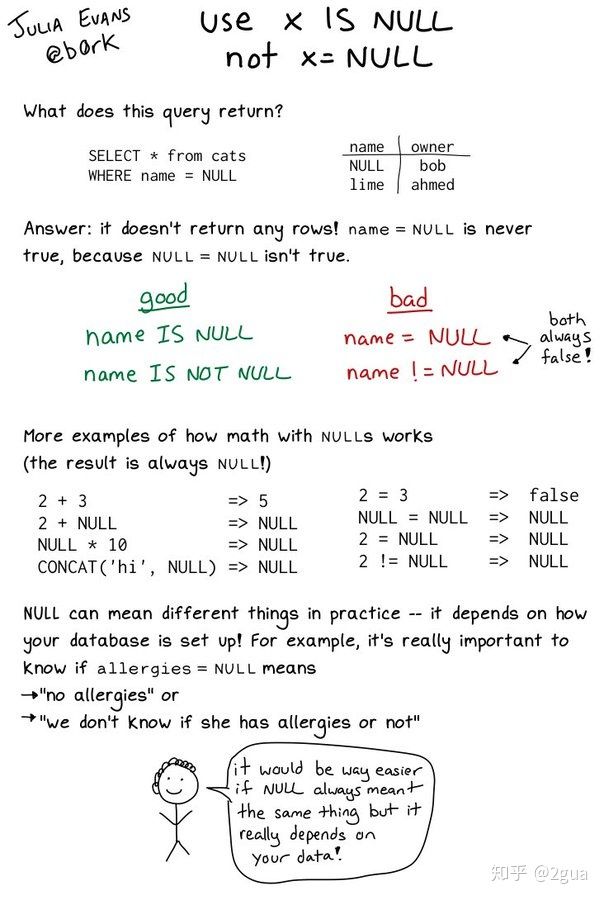 JULIA EVANS
@b0rk
use x IS NULL
not x = NULL
What does this query return?
SELECT * from cats
WHERE name = NULL
name owner
NULL bob
lime ahmed
Answer: it doesn't return any rows! name = NULL is never
true, because NULL = NULL isn't true.
good
name IS NULL
name IS NOT NULL
bad
name = NULL
name != NULL
both
always
false!
More examples of how math with NULLs works
(the result is always NULL!)
2 + 3 => 5
2 + NULL => NULL
NULL * 10 => NULL
CONCAT('hi', NULL) => NULL
2 = 3 => false
NULL = NULL => NULL
2 = NULL => NULL
2 != NULL => NULL
NULL can mean different things in practice -- it depends on how
your database is set up! For example, it's really important to
know if allergies = NULL means
→"no allergies" or
→"we don't know if she has allergies or not"
it would be way easier
if NULL always meant
the same thing but it
really depends on
your data!
知乎 @2gua